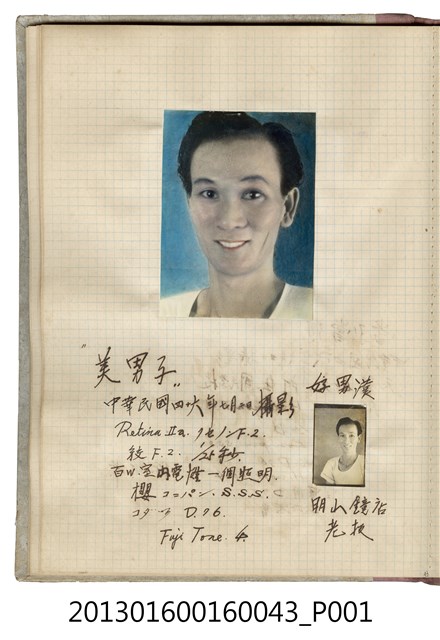 "美男子"
中華民國四十六年七月 攝影
Retina IIa. クセノン F.2.
絞 F.2.
百W.室內電燈一個照明.
櫻コニパン. S.S.S.
コダック D.76.
Fuji Tone. 4.
好男漢
明山鏡店
老板
201301600160043_P001